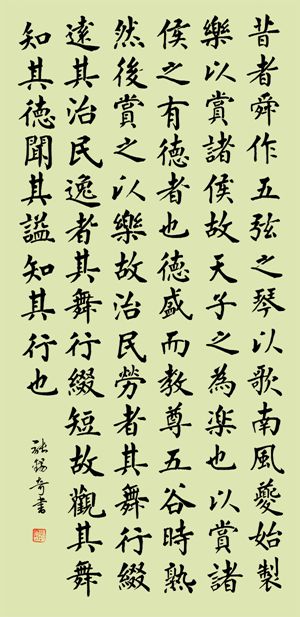 昔者舜作五弦之琴以歌南風夔始製
樂以賞諸侯故天子之為楽也以賞諸
侯之有德者也德盛而教尊五谷時熟
然後賞之以樂故治民勞者其舞行綴
遠其治民逸者其舞行綴短故觀其舞
知其德聞其謚知其行也
錫奇書